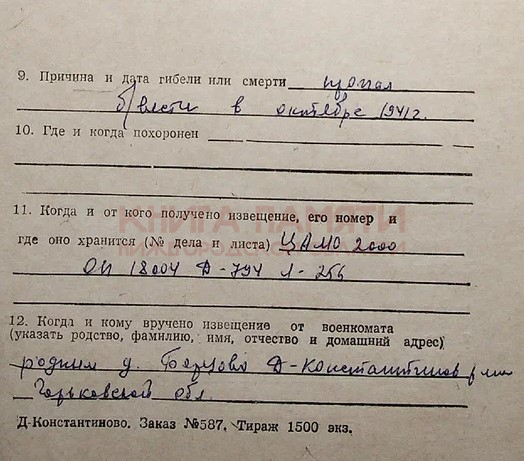 9. Причина и дата гибели или смерти пропал
б/вести в октябре 1941 г.
10. Где и когда похоронен
11. Когда и от кого получено извещение, его номер и
КНИГА ПАМЯТИ
где оно хранится (№ дела и листа) ЦАМО 2000
НИЖЕГОРОДСКОЙ ОБЛАСТИ
ОП 18004 Д-794 Л-256
12. Когда и кому вручено извещение от военкомата
(указать родство, фамилию, имя, отчество и домашний адрес)
родным д. Д-Константинов
Горьковской обл.
Д-Константиново. Заказ №587. Тираж 1500 экз.